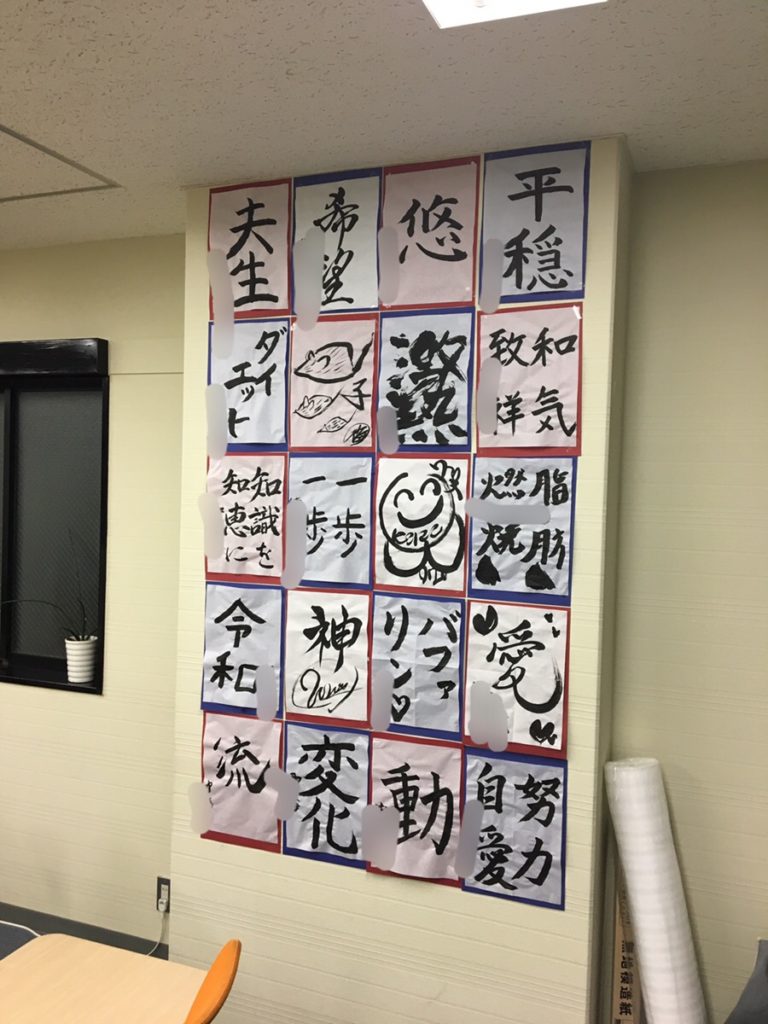 夫生
希望
悠
平穏
ダイ
エット
子
和気
致祥
知識を
知恵に
一歩
一歩
脂肪
燃焼
令和
神
バファ
リン♡
愛
流
変化
動
努力
自愛
無地模造紙